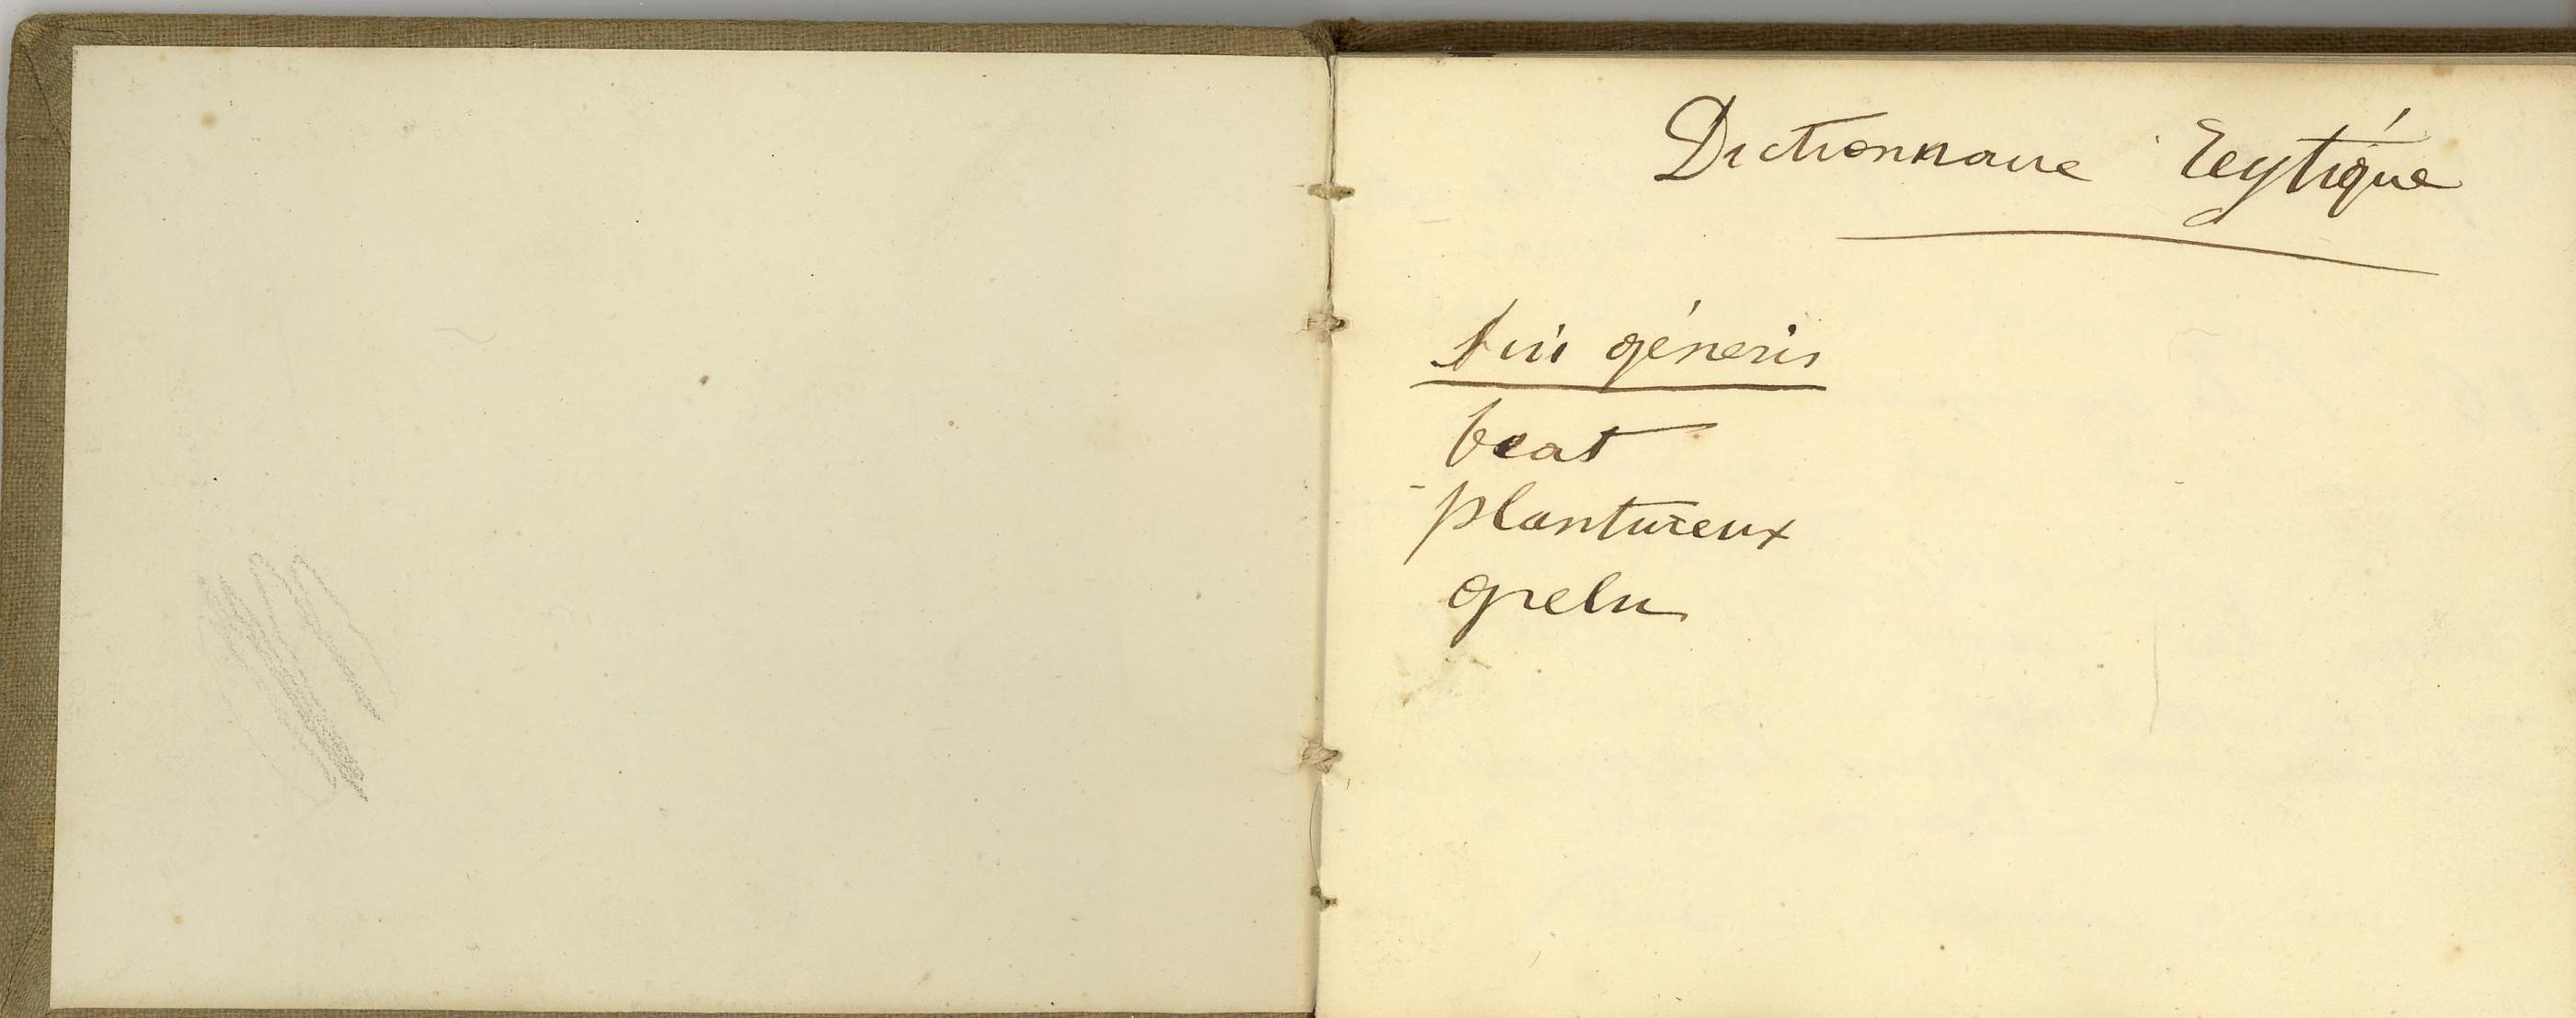 Dictionnaire
Sui géneris
beat
plantureux
grelu